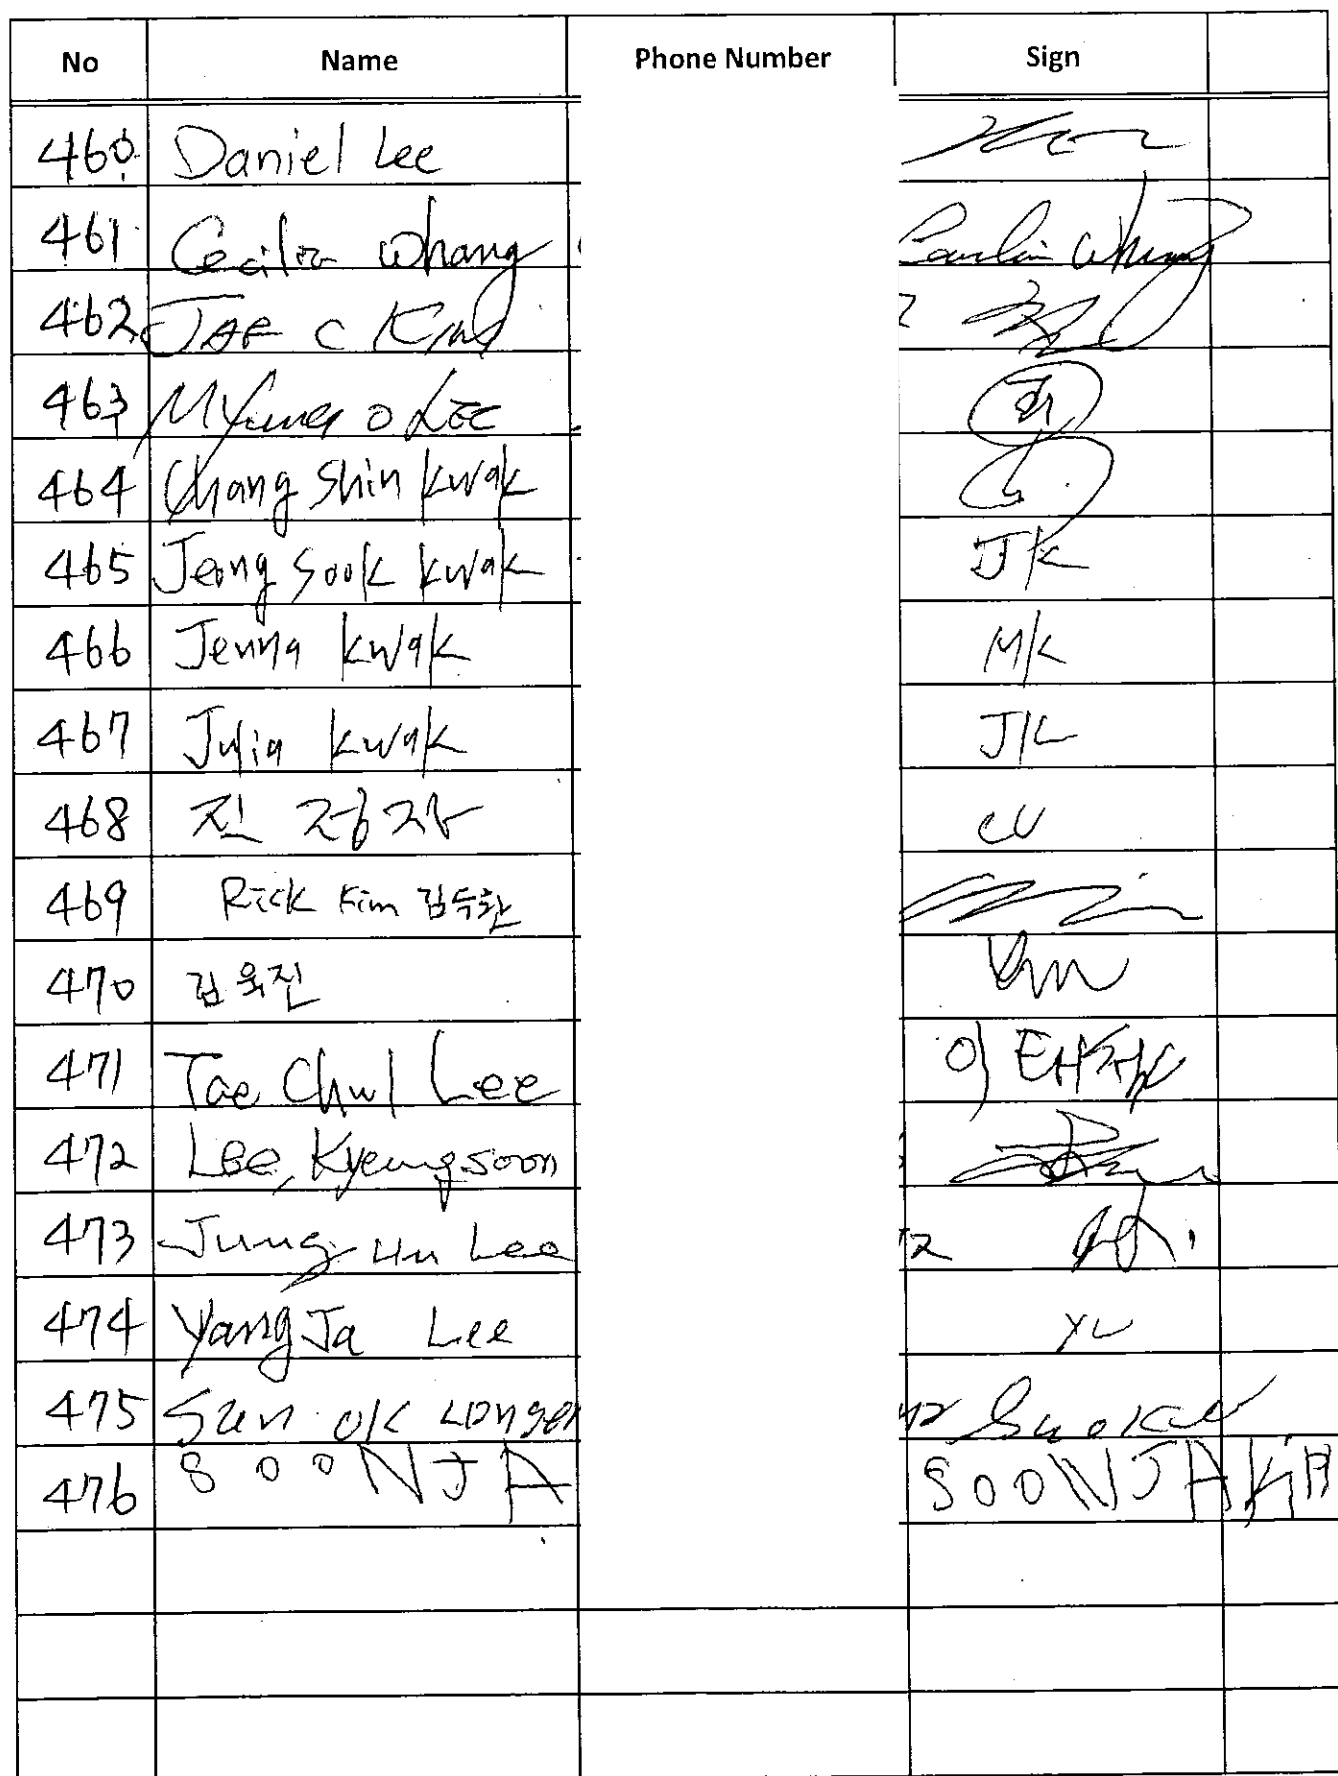 No Name Phone Number Sign
460 Daniel Lee
461 Cecilia Whang
462 JAE C Kim
463 Myung O Lee
464 Chang Shin Kwak
465 Jeong Sook Kwak JK
466 Jenna Kwak MK
467 Julia Kwak JK
468 진 정자
469 Rick Kim 김수환
470 김욱진
471 Tae Chul Lee 이태철
472 Lee, Kyeungsoon
473 Jung Hu Lee
474 Yang Ja Lee YL
475 Sun OK
476 SOONJA SOONJA KIM